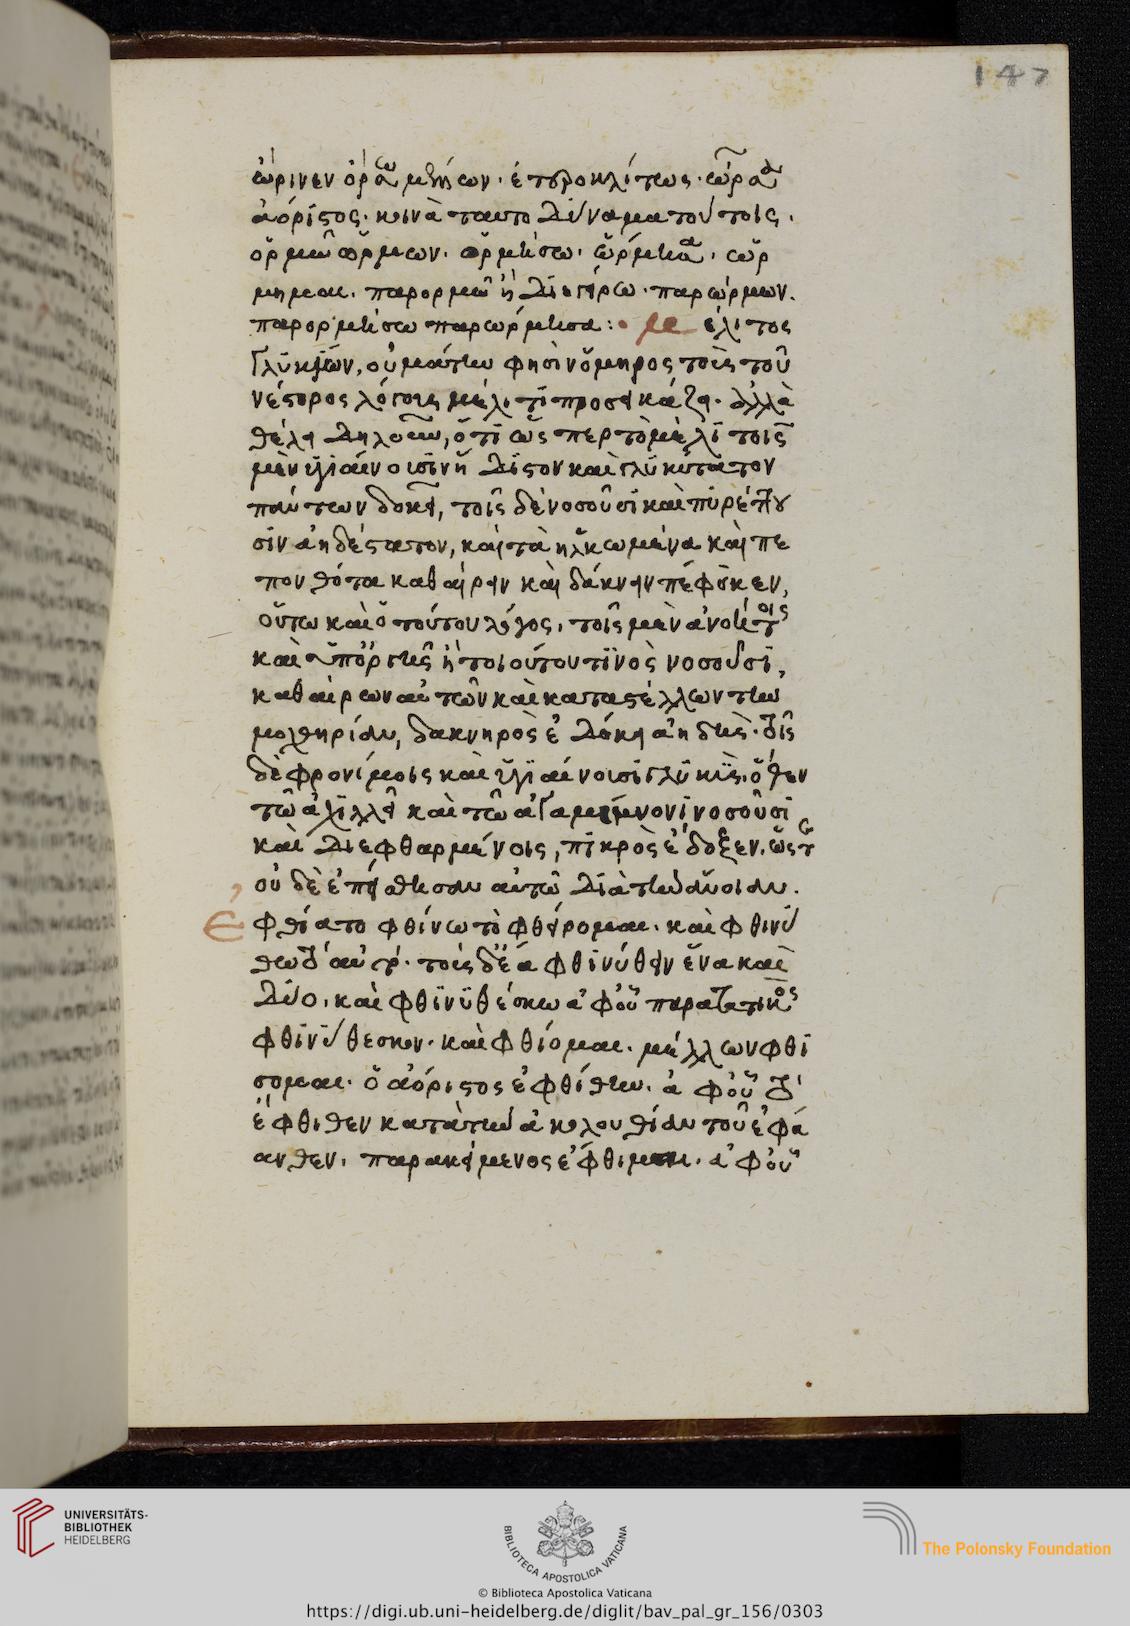 147
ἀόριστος· κοινὰ ταῦτα δύναμα τούτοις·
ὁρμῶ ὥρμων· ὁρμήσω· ὥρμησα·
παρορμῶ ἡ διεγείρω· παρώρμων·
παρορμήσω παρώρμησα: Μέλιτος
γλυκίων, οὐ μάτην φησὶν ὅμηρος τοῖς τοῦ
νέστορος λόγοις μέλιτι προσεικάζει· ἀλλὰ
θέλει δηλοῦν, ὅτι ὥσπερ τὸ μέλι τοῖς
μὲν ὑγιαίνουσιν ἥδιστον καὶ γλυκύτατον
πάντων δοκεῖ, τοῖς δὲ νοσοῦσι καὶ πυρέττου
σιν ἀηδέστατον, καὶ τὰ ἡλκωμένα καὶ πε
πονθότα καθαίρειν καὶ δάκνειν πέφυκεν,
οὕτω καὶ ὁ τούτου λόγος, τοῖς μὲν ἀνοήτοις
καὶ ὑπ' ὀργῆς ἢ τοιούτου τινὸς νοσοῦσι,
καθαίρων αὐτῶν καὶ καταστέλλων τὴν
μοχθηρίαν, δακνηρὸς ἐδόκει ἀηδής· τοῖς
δὲ φρονίμοις καὶ ὑγιαίνουσι γλυκύς· ὅθεν
τῶ ἀχιλλεῖ καὶ τῶ ἀγαμέμνονι νοσοῦσι
καὶ διεφθαρμένοις, πικρὸς ἔδοξεν, ὥστε
οὐδὲ ἐπείσθησαν αὐτῶ διὰ τὴν ἄνοιαν.
Ἐφθίατο φθίνω τὸ φθείρομαι· καὶ φθινύ
δύο· καὶ φθινυθέσκω ἀφ' οὗ παρατατικὸς
φθινύθεσκον· καὶ φθίομαι· μέλλων φθί
σομαι· ὁ ἀόριστος ἐφθίθην· ἀφ' οὗ τὸ
ἔφθιθεν κατὰ τὴν ἀκολουθίαν τοῦ ἐφά
ανθεν· παρακείμενος ἔφθιμαι· ἀφ' οὗ
UNIVERSITÄTS-
BIBLIOTHEK
HEIDELBERG
BIBLIOTECA APOSTOLICA VATICANA
The Polonsky Foundation
© Biblioteca Apostolica Vaticana
https://digi.ub.uni-heidelberg.de/diglit/bav_pal_gr_156/0303